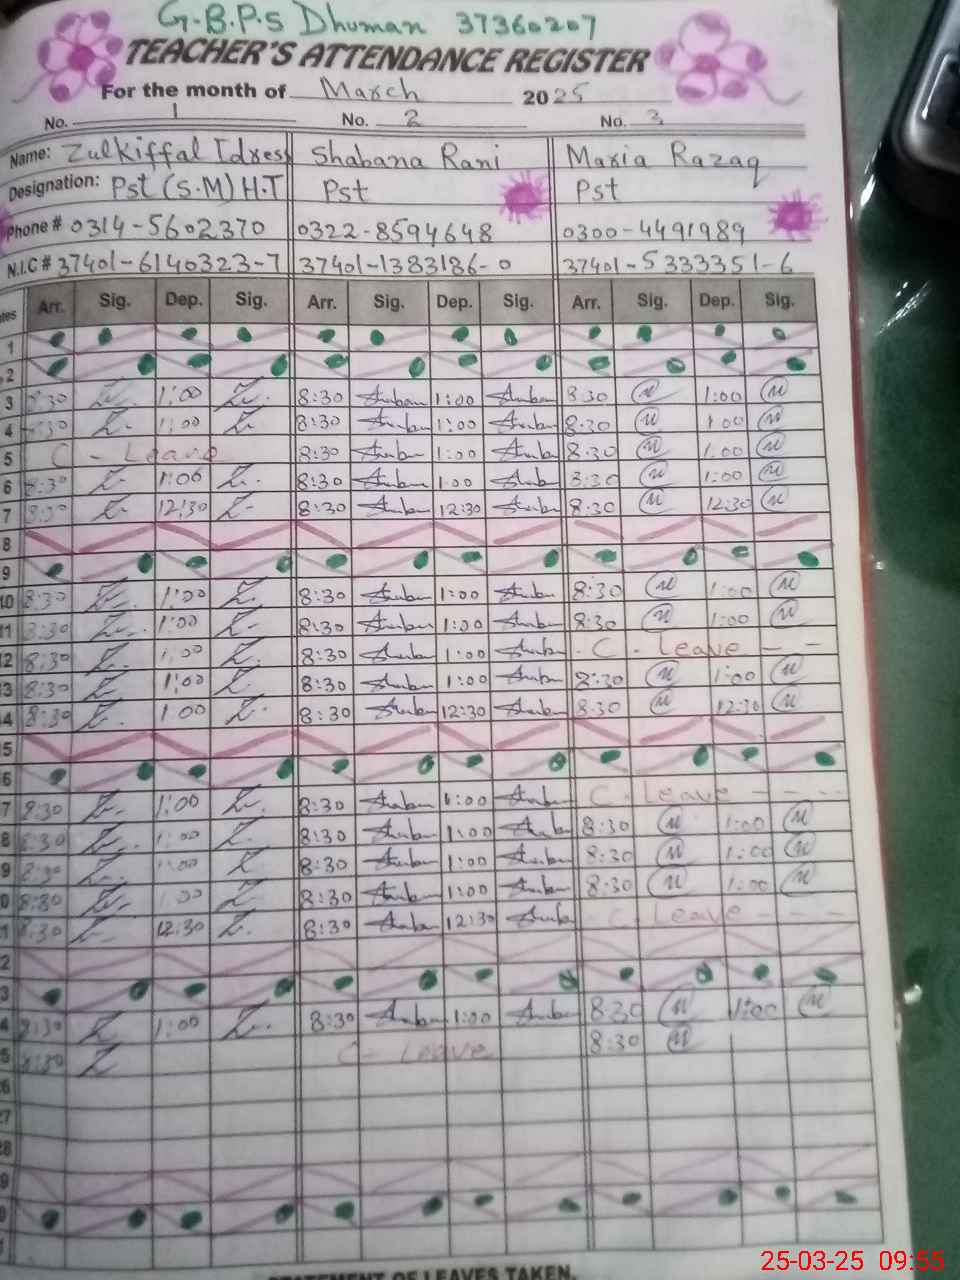 G.B.P.S Dhuman 37360207
TEACHER'S ATTENDANCE REGISTER
For the month of March 2025
No. 1 No. 2 No. 3
Name: Zulkiffal Idrees Shabana Rani Maria Razaq
Designation: Pst (S.M) H.T Pst Pst
Phone # 0314-5602370 0322-8594648 0300-4491989
N.I.C # 37401-6140323-7 37401-1383186-0 37401-5333351-6
Arr. Sig. Dep. Sig. Arr. Sig. Dep. Sig. Arr. Sig. Dep. Sig.
1
2
3 8:30 1:00 8:30 Shaban 1:00 Shaban 8:30 1:00
4 8:30 1:00 8:30 Shaban 1:00 Shaban 8:30 1:00
5 C - Leave 8:30 Shaban 1:00 Shaban 8:30 1:00
6 8:30 1:00 8:30 Shaban 1:00 Shaban 8:30 1:00
7 8:30 12:30 8:30 Shaban 12:30 Shaban 8:30 12:30
8
9
10 8:30 1:00 8:30 Shaban 1:00 Shaban 8:30 1:00
11 8:30 1:00 8:30 Shaban 1:00 Shaban 8:30 1:00
12 8:30 1:00 8:30 Shaban 1:00 Shaban - C - Leave - -
13 8:30 1:00 8:30 Shaban 1:00 Shaban 8:30 1:00
4 8:30 1:00 8:30 Shaban 12:30 Shaban 8:30 12:30
5
6
7 8:30 1:00 8:30 Shaban 1:00 Shaban C - Leave - - - -
8 8:30 1:00 8:30 Shaban 1:00 Shaban 8:30 1:00
9 8:30 1:00 8:30 Shaban 1:00 Shaban 8:30 1:00
0 8:30 1:00 8:30 Shaban 1:00 Shaban 8:30 1:00
1 8:30 12:30 8:30 Shaban 12:30 Shaban - C - Leave - - -
2
3
4 8:30 1:00 8:30 Shaban 1:00 Shaban 8:30 1:00
5 8:30 C - Leave 8:30
26
27
28
9
0
STATEMENT OF LEAVES TAKEN.
25-03-25 09:55